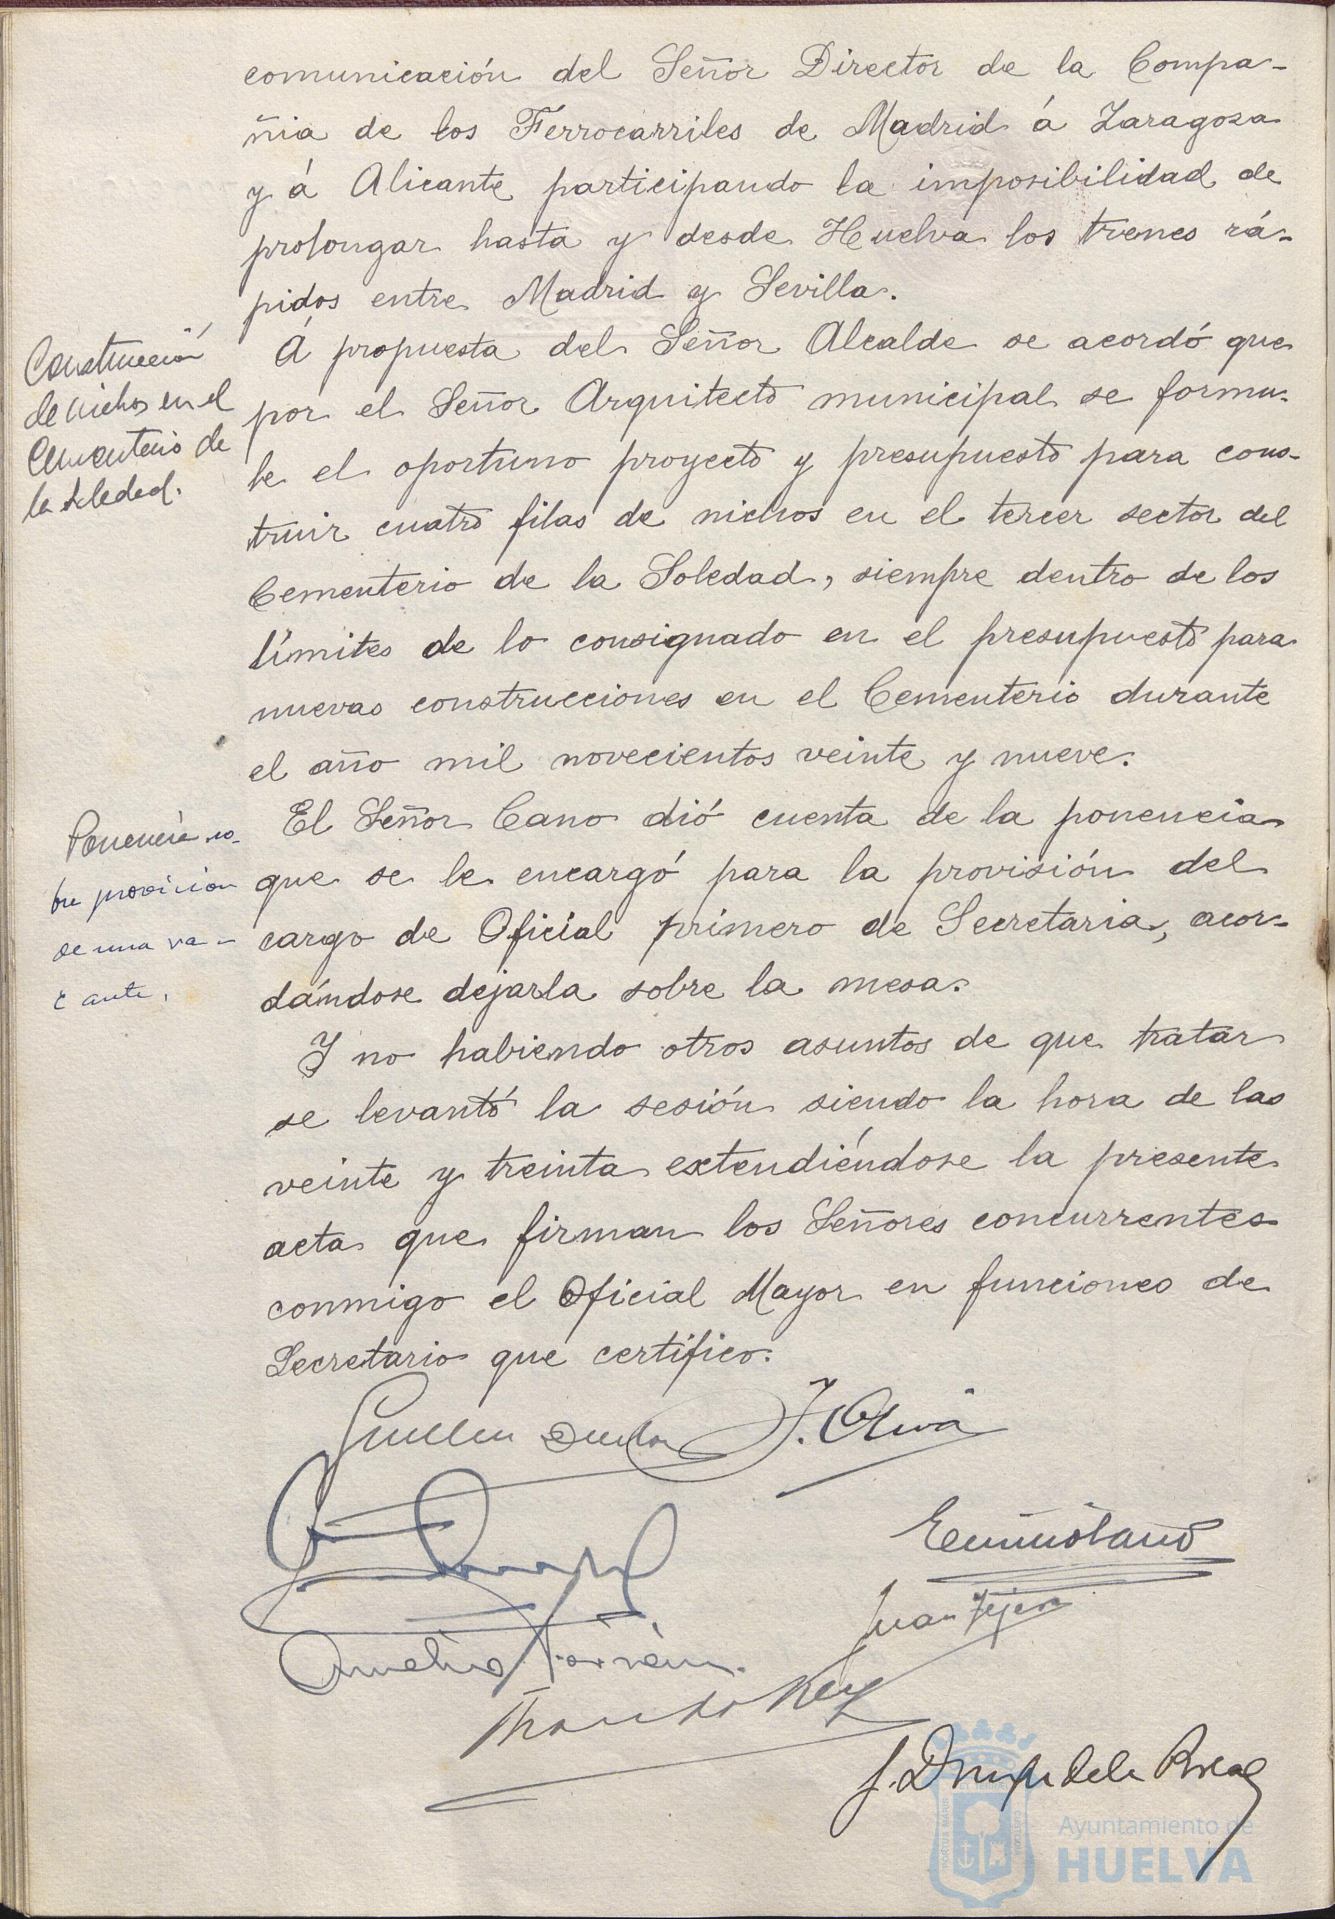 comunicación del Señor Director de la Compa-
ñia de los Ferrocarriles de Madrid á Zaragoza
y á Alicante participando la imposibilidad de
prolongar hasta y desde Huelva los trenes rá-
pidos entre Madrid y Sevilla.
Construcción
de nichos en el
Cementerio de
la Soledad.
Á propuesta del Señor Alcalde se acordó que
por el Señor Arquitecto municipal se formu-
le el oportuno proyecto y presupuesto para cons-
truir cuatro filas de nichos en el tercer sector del
Cementerio de la Soledad, siempre dentro de los
límites de lo consignado en el presupuesto para
nuevas construcciones en el Cementerio durante
el año mil novecientos veinte y nueve.
Ponencia so-
bre provición
de una va-
cante.
El Señor Cano dió cuenta de la ponencia
que se le encargó para la provisión del
cargo de Oficial primero de Secretaria, acor-
dándose dejarla sobre la mesa.
Y no habiendo otros asuntos de que tratar
se levantó la sesión siendo la hora de las
veinte y treinta extendiéndose la presente
acta que firman los Señores concurrentes
conmigo el Oficial Mayor en funciones de
Secretario que certifico.
J. Oliva
Juan Tejero
Rey
Ayuntamiento de
HUELVA